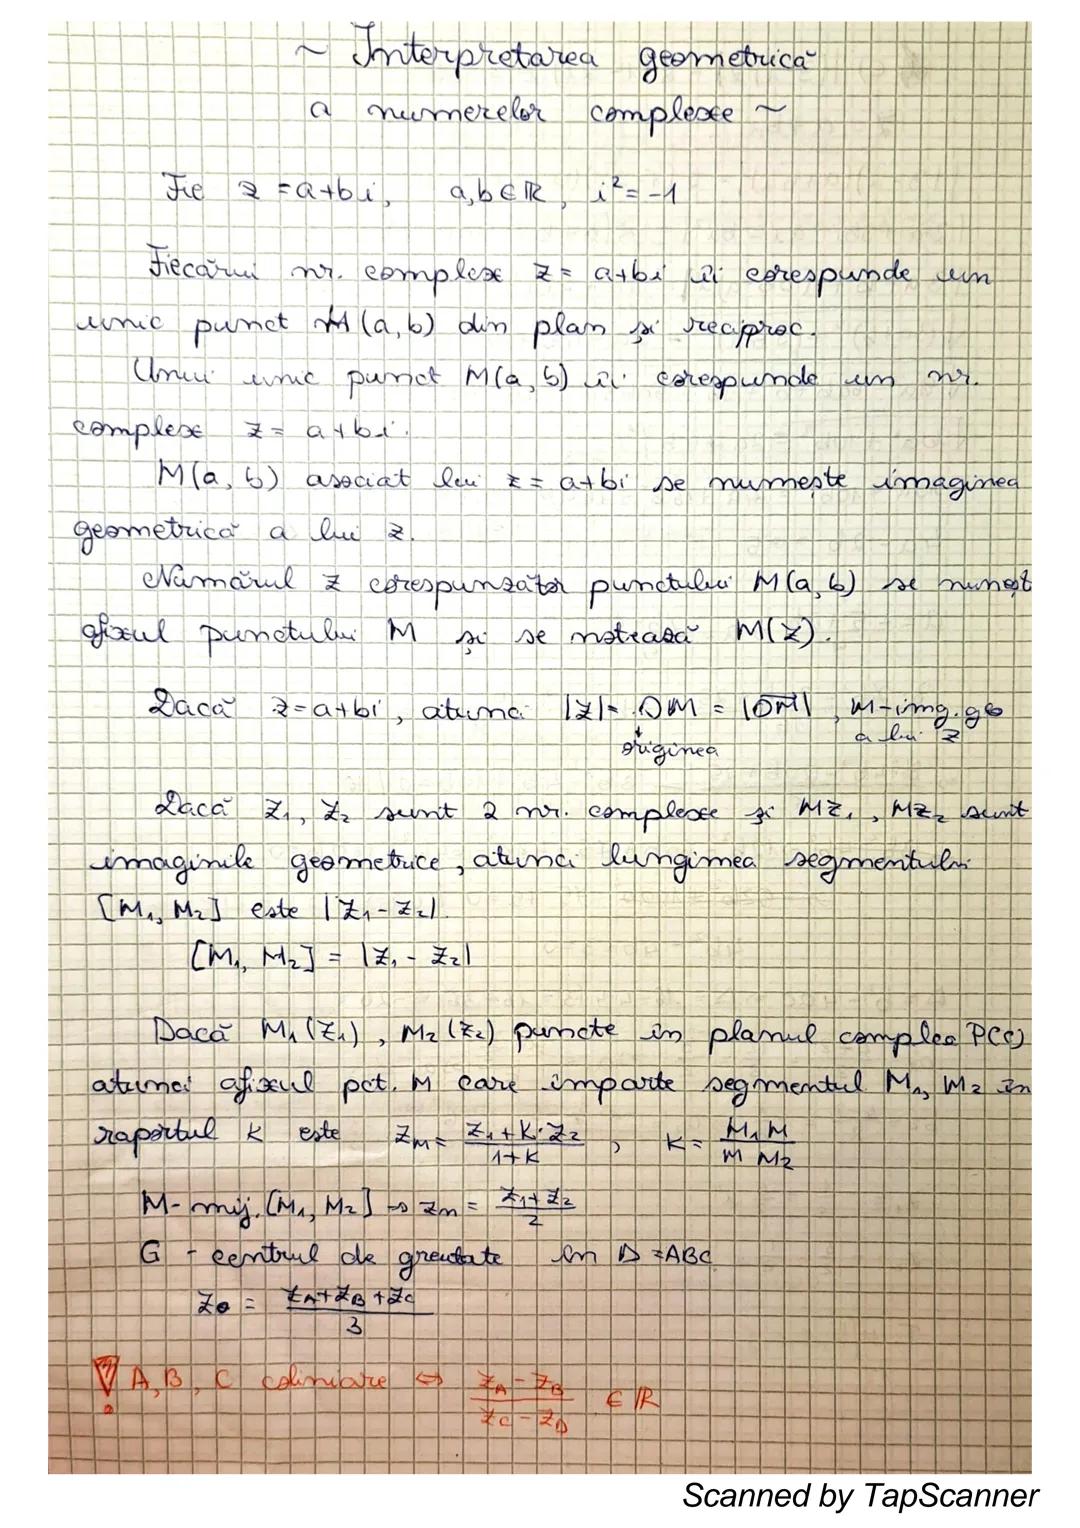 ~ Interpretarea geometrică
a numerelor complexe ~
Fie z = a+bi, a,b ∈ ℝ, i² = -1
Fiecărui nr. complex z = a+bi îi corespunde un
unic punct M(a,b) din plan și reciproc.
Unui unic punct M(a,b) îi corespunde un nr.
complexe z = a+bi.
M(a, b) asociat lui z = a+bi se numește imaginea
geometrică a lui z.
Numărul z corespunzător punctului M(a,b) se numest
afixul punctului M și se notează M(z).
Dacă z=a+bi, atunci |z| = OM = |OM|, M-img. geo
originea a lui z
Dacă z₁, z₂ sunt 2 nr. complexe și Mz₁, Mz₂ sunt
imaginile geometrice, atunci lungimea segmentului
[M₁, M₂] este |z₁ - z₂|.
[M₁, M₂] = |z₁ - z₂|
Dacă M₁(z₁), M₂(z₂) puncte în planul complex P(C)
atunci afixul pct. M care împarte segmentul M₁, M₂ în
raportul k este z_M = (z₁ + k·z₂)/(1+k), k = M₁M/MM₂
M - mij. [M₁, M₂] → z_m = (z₁+z₂)/2
G - centrul de greutate în Δ =ABC
z_G = (z_A + z_B + z_C)/3
! A, B, C coliniare ⇔ (z_A - z_B)/(z_C - z_D) ∈ ℝ
Scanned by TapScanner